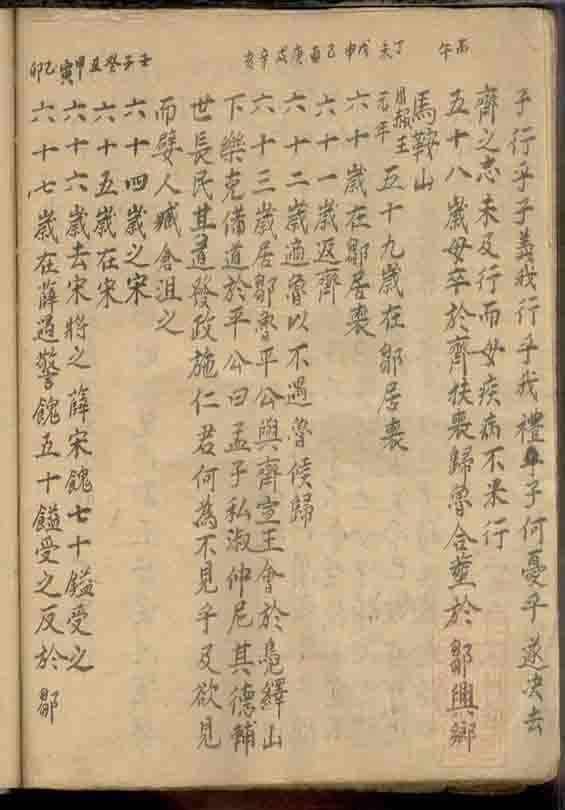 丙午
丁未 戊申 己酉 庚戌 辛亥
壬子 癸丑 甲寅 乙卯
子行乎子義我行乎我禮子何憂乎遂決去
齊之志未及行而母疾病不果行
五十八歲母卒於齊扶喪歸魯合塟於鄒興鄉
馬鞍山
周赧王元年 五十九歲在鄒居喪
六十歲在鄒居喪
六十一歲返齊
六十二歲適魯以不遇魯侯歸
六十三歲居鄒魯平公與齊宣王會於鳧繹山
下樂克備道於平公曰孟子私淑仲尼其德輔
世長民其道發政施仁君何為不見乎及欲見
而嬖人臧倉沮之
六十四歲之宋
六十五歲在宋
六十六歲去宋將之薛宋餽七十鎰受之
六十七歲在薛過警餽五十鎰受之反於鄒